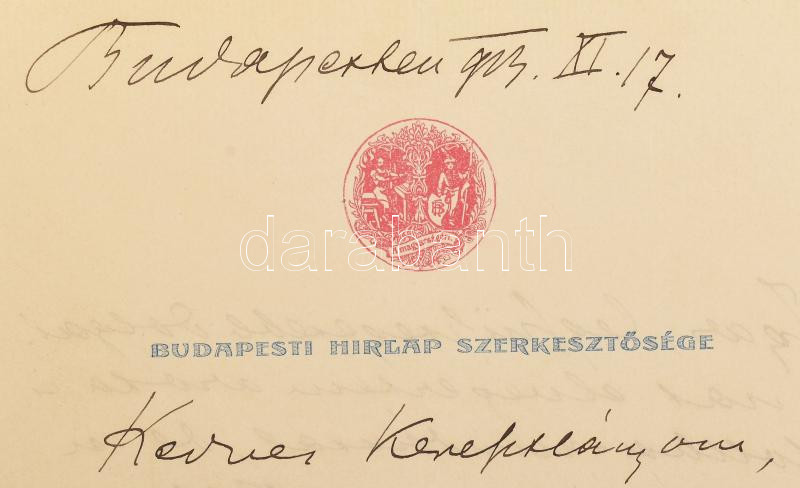 Budapesten 913. XI. 17.
magyarságért
darabanth
BUDAPESTI HIRLAP SZERKESZTŐSÉGE
Kedves Keresztlányom,